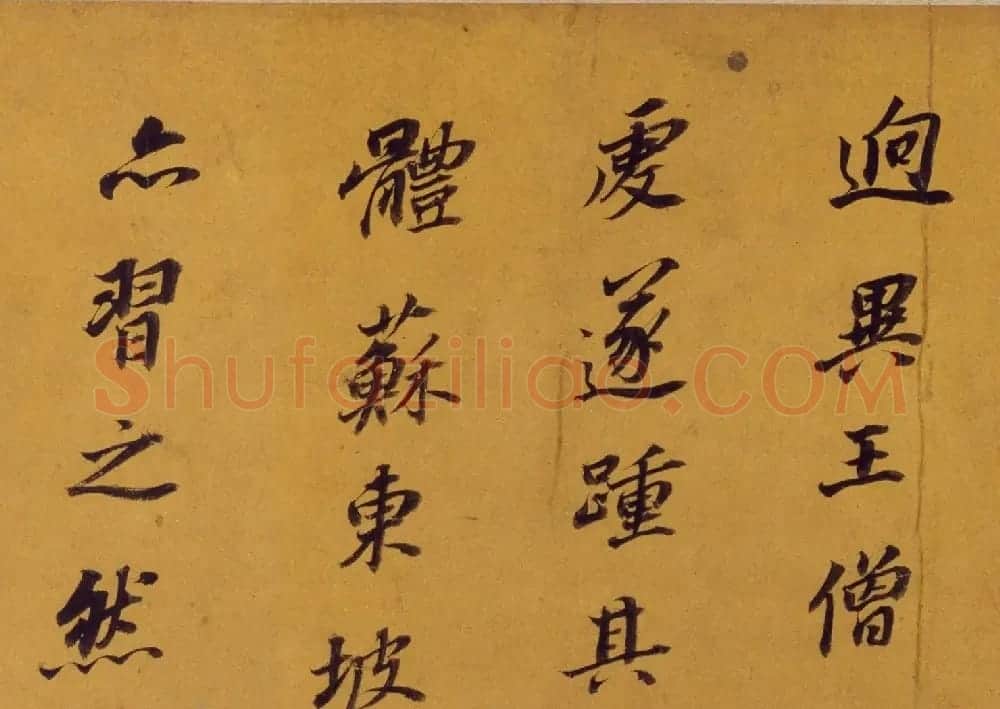 逈異王僧
虔遂踵其
體蘇東坡
亦習之然
Shufaziliao.COM